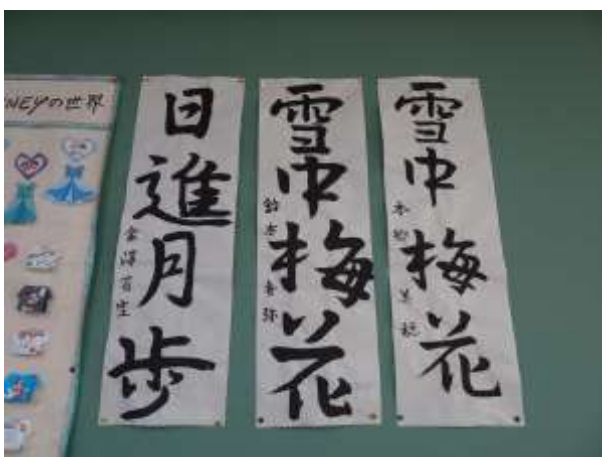 NEYの世界
日進月歩
雪中梅花
雪中梅花